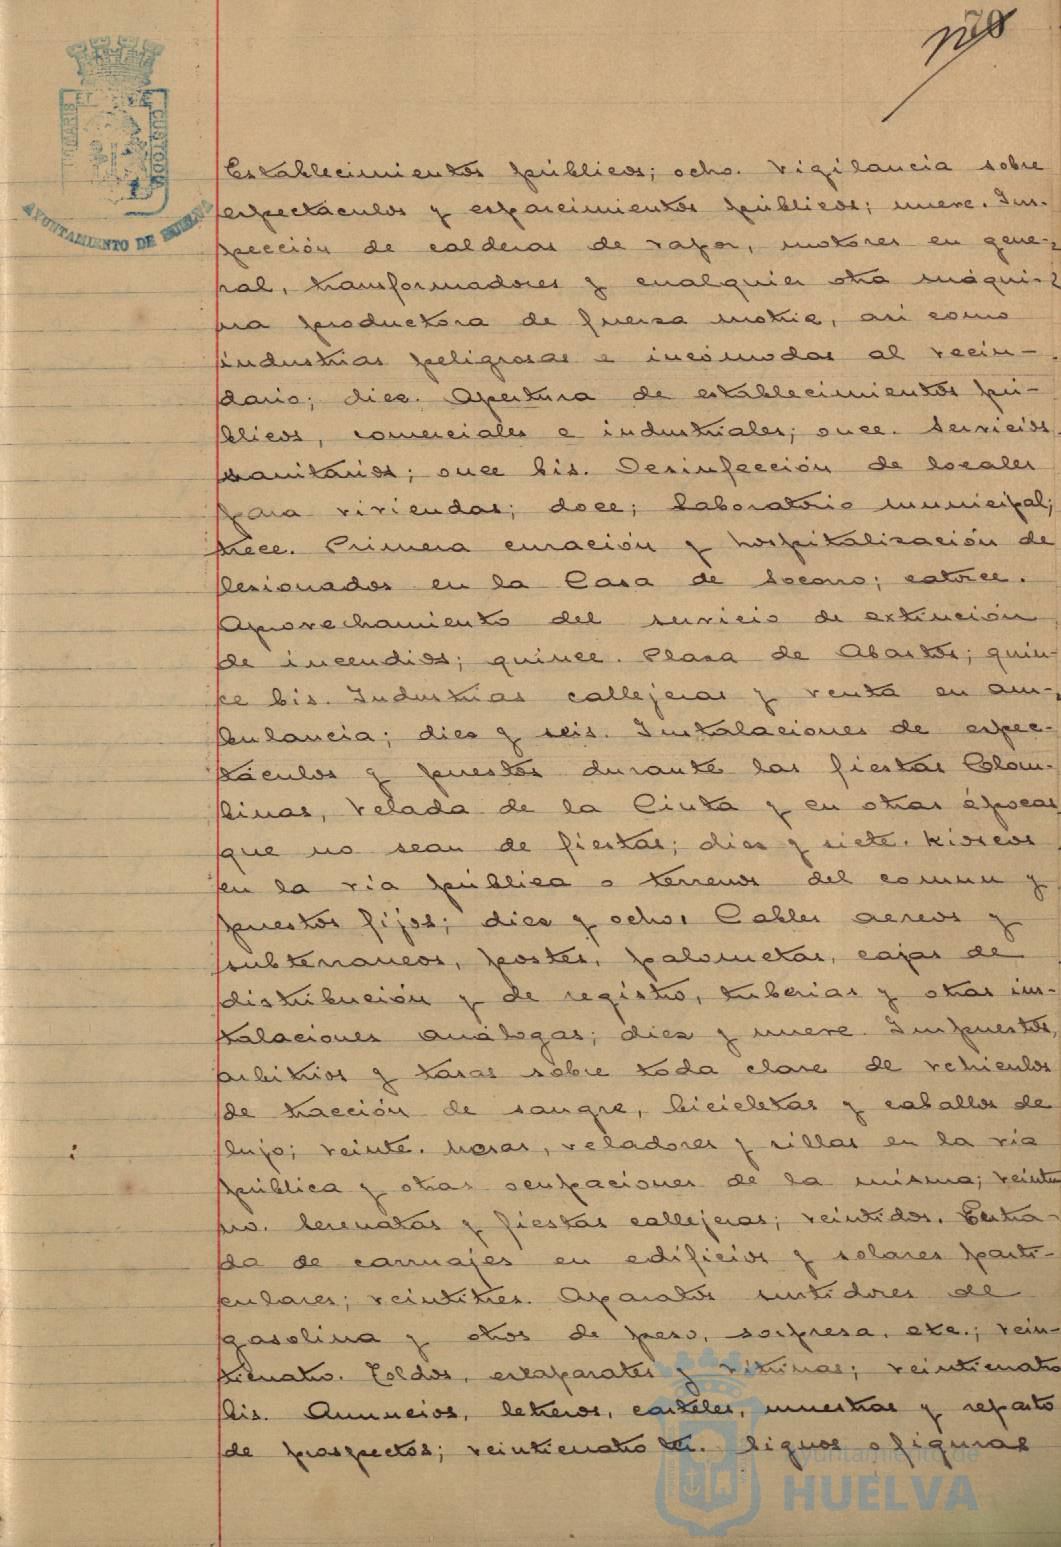 70
Establecimientos públicos; ocho. Vigilancia sobre
espectáculos y esparcimientos públicos; nueve. Ins-
pección de calderas de vapor, motores en gene-
ral, transformadores y cualquier otra máqui-
na productora de fuerza motriz, asi como
industrias peligrosas e incómodas al vecin-
dario; diez. Apertura de establecimientos pú-
blicos, comerciales e industriales; once. Servicios
sanitarios; once bis. Desinfección de locales
para viviendas; doce; Laboratorio municipal;
trece. Primera curación y hospitalización de
lesionados en la Casa de Socorro; catorce.
Aprovechamiento del servicio de extinción
de incendios; quince. Plaza de Abastos; quin-
ce bis. Industrias callejeras y venta en am-
bulancia; diez y seis. Instalaciones de espec-
táculos y puestos durante las fiestas Colom-
binas, Velada de la Cinta y en otras épocas
que no sean de fiestas; diez y siete. Kioscos
en la via pública o terrenos del comun y
puestos fijos; diez y ocho. Cables aereos y
subterraneos, postes, palometas, cajas de
distribución y de registro, tuberias y otras ins-
talaciones análogas; diez y nueve. Impuestos,
arbitrios y tasas sobre toda clase de vehiculos
de tracción de sangre, bicicletas y caballos de
lujo; veinte. Mesas, veladores y sillas en la via
pública y otras ocupaciones de la misma; veintiu
no. Serenatas y fiestas callejeras; veintidos. Entra-
da de carruajes en edificios y solares parti-
culares; veintitres. Aparatos surtidores de
gasolina y otros de peso, sorpresa, etc.; vein-
ticuatro. Toldos, escaparates y vitrinas; veinticuatro
bis. Anuncios, letreros, carteles, muestras y reparto
de prospectos; veinticuatro ter. Signos o figuras
AYUNTAMIENTO DE HUELVA
Ayuntamiento de
HUELVA